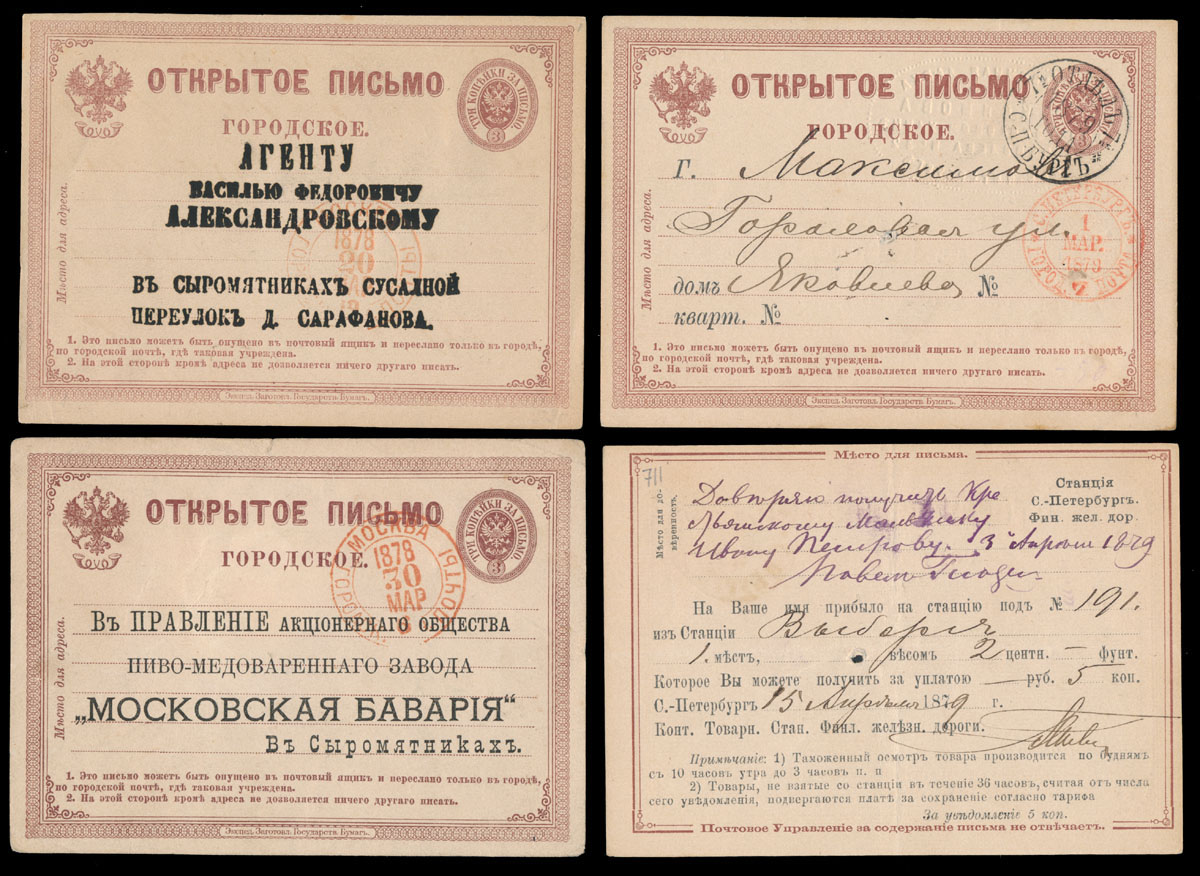 ОТКРЫТОЕ ПИСЬМО
ТРИ КОПѢЙКИ ЗА ПИСЬМО.
3
ГОРОДСКОЕ.
АГЕНТУ
ВАСИЛЬЮ ФЕДОРОВИЧУ
АЛЕКСАНДРОВСКОМУ
ВЪ СЫРОМЯТНИКАХЪ СУСАЛНОЙ
ПЕРЕУЛОКЪ Д. САРАФАНОВА.
Мѣсто для адреса.
1878
20
1. Это письмо можетъ быть опущено въ почтовый ящикъ и переслано только въ городѣ,
по городской почтѣ, гдѣ таковая учреждена.
2. На этой сторонѣ кромѣ адреса не дозволяется ничего другаго писать.
Экспед. Заготовл. Государств. Бумагъ.
ОТКРЫТОЕ ПИСЬМО
ГОРОДСКОЕ.
С.П.БУРГЪ
Г. Максимо
Гороховая ул.
домъ Яковлева №
кварт. №
Мѣсто для адреса.
С.ПЕТЕРБУРГЪ
1
МАР.
1879
1. Это письмо можетъ быть опущено въ почтовый ящикъ и переслано только въ городѣ,
по городской почтѣ, гдѣ таковая учреждена.
2. На этой сторонѣ кромѣ адреса не дозволяется ничего другаго писать.
Экспед. Заготовл. Государств. Бумагъ.
ОТКРЫТОЕ ПИСЬМО
ТРИ КОПѢЙКИ ЗА ПИСЬМО.
3
ГОРОДСКОЕ.
МОСКВА
1878
30
МАР
ПОЧТЫ
Въ ПРАВЛЕНІЕ АКЦІОНЕРНАГО ОБЩЕСТВА
ПИВО-МЕДОВАРЕННАГО ЗАВОДА
„МОСКОВСКАЯ БАВАРІЯ“
Въ Сыромятникахъ.
Мѣсто для адреса.
1. Это письмо можетъ быть опущено въ почтовый ящикъ и переслано только въ городѣ,
по городской почтѣ, гдѣ таковая учреждена.
2. На этой сторонѣ кромѣ адреса не дозволяется ничего другаго писать.
Экспед. Заготовл. Государств. Бумагъ.
Мѣсто для письма.
711
Мѣсто для до-
вѣренность.
Довѣряю получить Кре
Ивану Петрову. 3 Апрѣля 1879
Станція
С.-Петербургъ.
Фин. жел. дор.
На Ваше имя прибыло на станцію подъ № 191.
изъ Станціи Выборга
1. мѣстъ, вѣсомъ 2 центн. — фунт.
Которое Вы можете получить за уплатою — руб. 5 коп.
С.-Петербургъ 15 Апрѣля 1879 г.
Конт. Товарн. Стан. Финл. желѣзн. дороги.
Примѣчаніе: 1) Таможенный осмотръ товара производится по буднямъ
съ 10 часовъ утра до 3 часовъ п. п
2) Товары, не взятые со станціи въ теченіе 36 часовъ, считая отъ числа
сего увѣдомленія, подвергаются платѣ за сохраненіе согласно тарифа
За увѣдомленіе 5 коп.
Почтовое Управленіе за содержаніе письма не отвѣчаетъ.